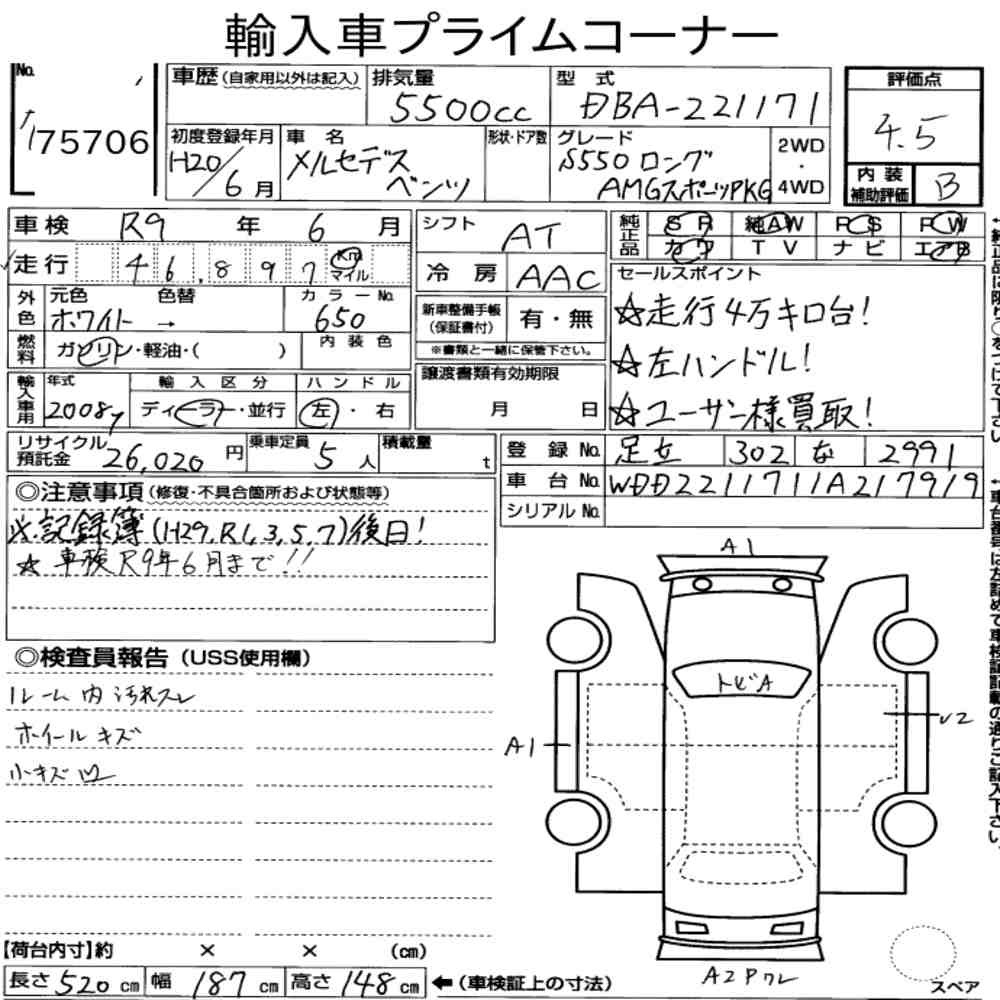 輸入車プライムコーナー
No. 75706
車歴(自家用以外は記入)
排気量 5500cc
型式 DBA-221171
評価点 4.5
初度登録年月 H20/6月
車名 メルセデスベンツ
形状・ドア数
グレード S550ロング AMGスポーツPKG
2WD・4WD
内装補助評価 B
車検 R9年6月
シフト AT
純正品 SR 純AW PS PW
カワ TV ナビ エアB
走行 46,897 Km マイル
冷房 AAC
セールスポイント
☆走行4万キロ台!
☆左ハンドル!
☆ユーザー様買取!
外色 元色 ホワイト → 色替 カラーNo. 650
新車整備手帳(保証書付) 有・無
※書類と一緒に保管下さい。
燃料 ガソリン・軽油・( ) 内装色
譲渡書類有効期限 月 日
輸入車用 年式 2008y 輸入区分 ディーラー・並行 ハンドル 左・右
リサイクル預託金 26,020円 乗車定員 5人 積載量 t
登録No. 足立 302 な 2991
車台No. WDD2211711A217919
シリアルNo.
◎注意事項(修復・不具合箇所および状態等)
※記録簿(H29.R1,3,5,7)後日!
☆車検R9年6月まで!!
◎検査員報告(USS使用欄)
ルーム内汚れスレ
ホイールキズ
小キズ凹
A1
トビA
A1
U2
A2Pワレ
スペア
【荷台内寸】約 × × (cm)
長さ 520cm 幅 187cm 高さ 148cm ←(車検証上の寸法)
↑純正品は限り○をつけて下さい
↑車台番号は左詰めで車検証記載の通りご記入下さい。